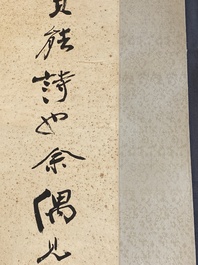 能詩也余偶見